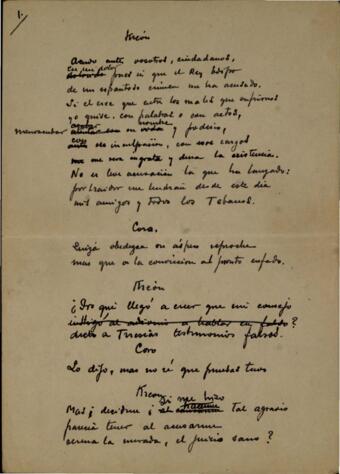 1.
Kreón
Acudo ante vosotros, ciudadanos,
En un dolor
pues sí que el Rey Edipo
de un espantoso crimen me ha acusado.
Si él cree que entre los males que sufrimos
yo quise, con palabras o con actos,
nombre
menoscabar su y poderío,
con esa inculpación, con esos cargos
me sería ingrata y dura la existencia.
No es leve acusación la que ha lanzado:
por traidor me tendrán desde este día
mis amigos y todos los Tebanos.
Coro.
Quizá obedezca su áspero reproche
mas que a la convicción al pronto enfado.
Kreón
¿Por qué llegó a creer que mi consejo
instigó al adivino a hablar en falso?
dictó a Tiresias testimonios falsos.
Coro
Lo dijo, mas no sé que pruebas tuvo
Kreón
Si me hizo
Mas, decidme ¿ al tal agravio
parecía tener al acusarme
serena la mirada, el juicio sano?